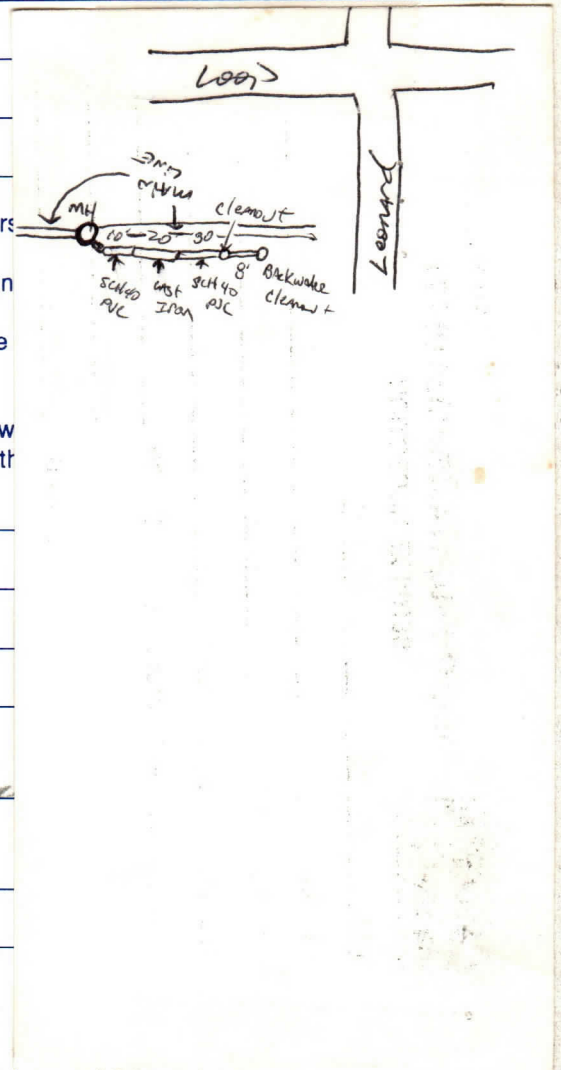 Loop
Leonard
MAIN
LINE
MH
Cleanout
10' 20' 90
8'
SCH 40
PVC
CAST
Iron
SCH 40
PVC
Backwater
Cleanout
rs
n
e
w
th